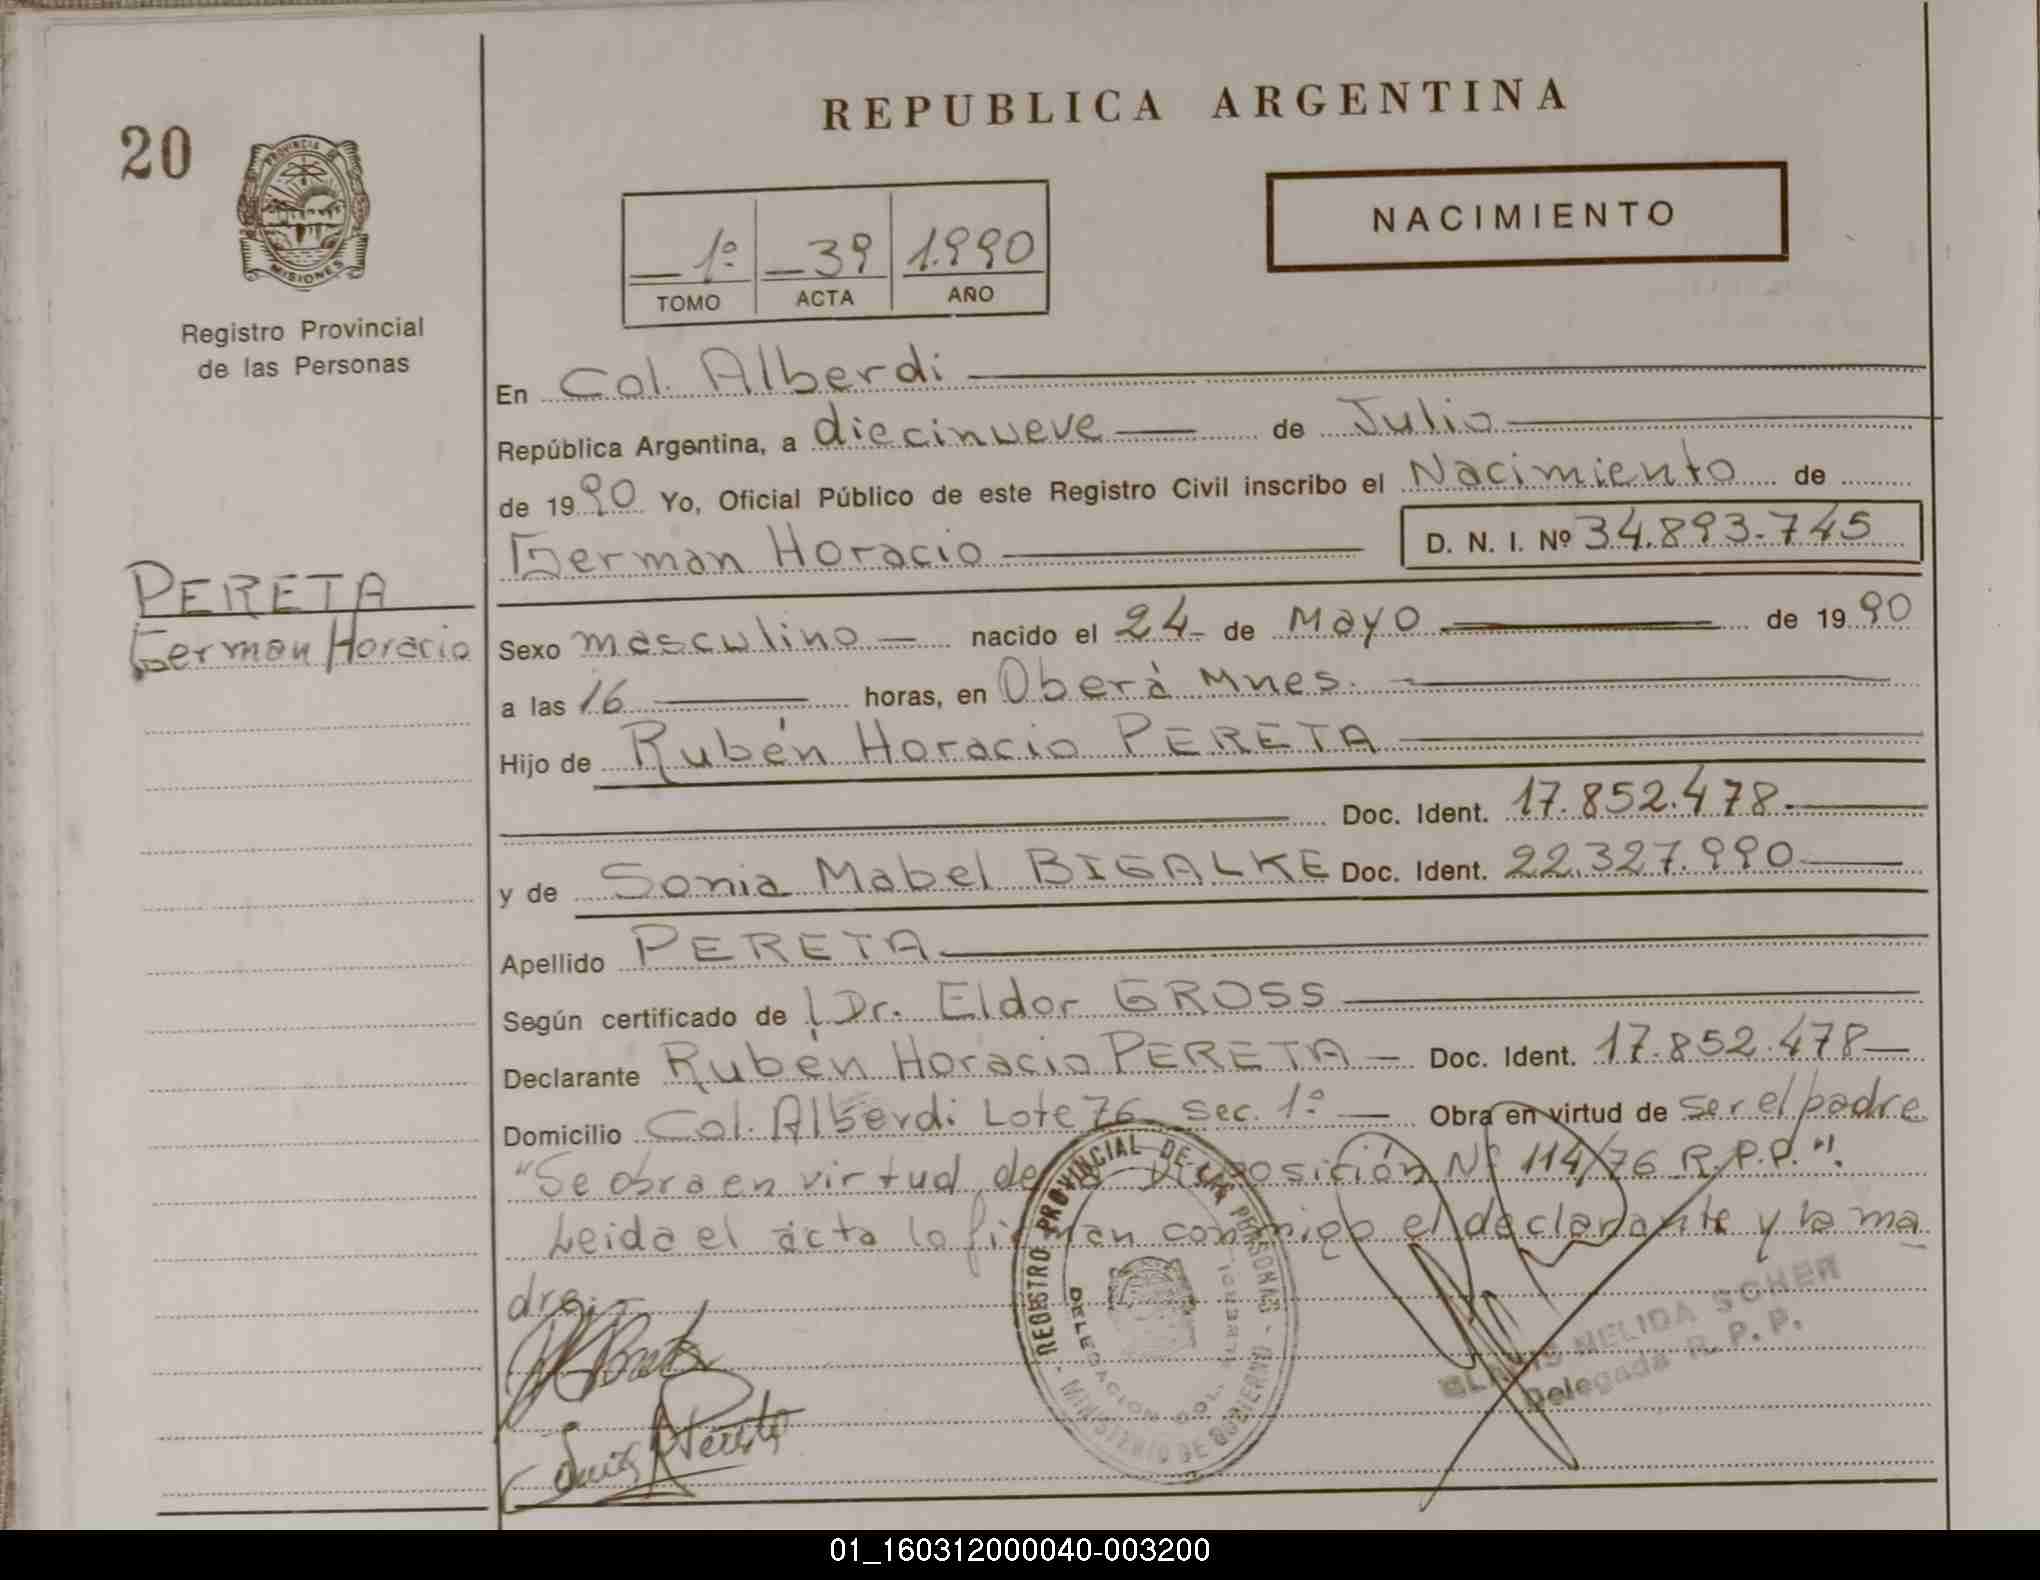 20
PROVINCIA DE
MISIONES
Registro Provincial
de las Personas
PERETA
German Horacio
REPUBLICA ARGENTINA
NACIMIENTO
1º 39 1.990
TOMO ACTA AÑO
En Col. Alberdi
República Argentina, a diecinueve de Julio
de 1990 Yo, Oficial Público de este Registro Civil inscribo el Nacimiento de
German Horacio D. N. I. Nº 34.893.745
Sexo masculino nacido el 24 de Mayo de 1990
a las 16 horas, en Oberá Mnes.
Hijo de Rubén Horacio PERETA
Doc. Ident. 17.852.478
y de Sonia Mabel BIGALKE Doc. Ident. 22.327.990
Apellido PERETA
Según certificado de l Dr. Eldor GROSS
Declarante Rubén Horacio PERETA Doc. Ident. 17.852.478
Domicilio Col. Alberdi Lote 76 Sec. 1º Obra en virtud de ser el padre
"Se obra en virtud de Disposición Nº 114/76 R.P.P.".
Leida el acta la firman conmigo el declarante y la ma
dre.
REGISTRO PROVINCIAL DE LAS PERSONAS
MINISTERIO DE GOBIERNO
DELEGACION COL.
NELIDA SCHER
Delegada R. P. P.
01_160312000040-003200